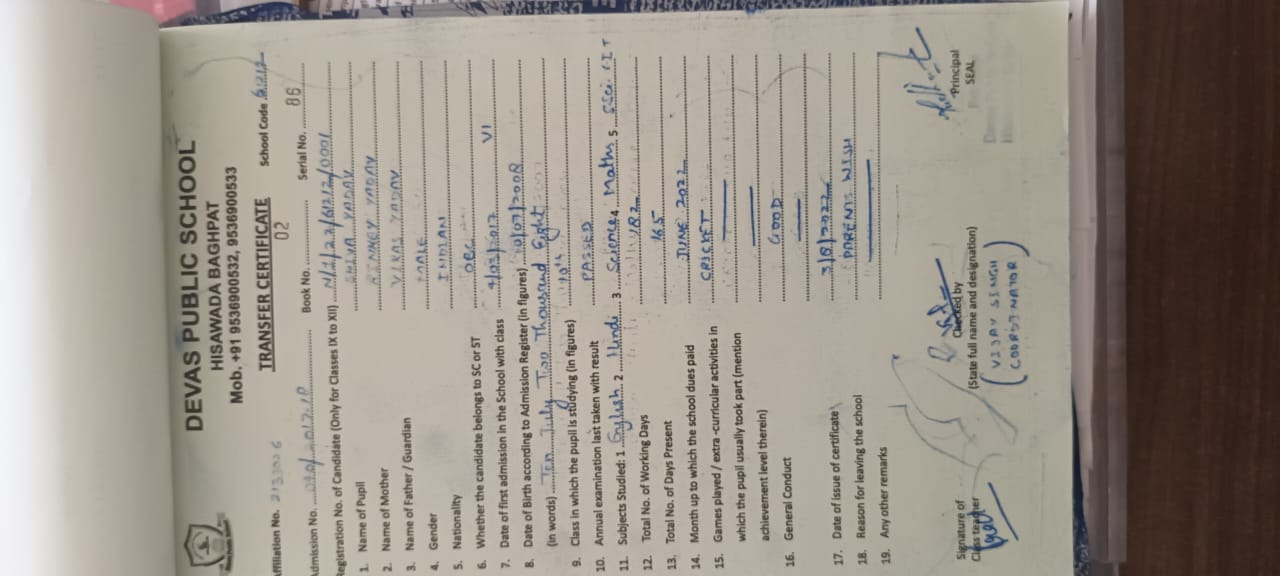 DEVAS PUBLIC SCHOOL
HISAWADA BAGHPAT
Mob. +91 9536900532, 9536900533
TRANSFER CERTIFICATE
Affiliation No. 2133036 School Code 61212
Admission No. Book No. 02 Serial No. 86
Registration No. of Candidate (Only for Classes IX to XII) N/1/22/61212/0001
1. Name of Pupil SHIVA YADAV
2. Name of Mother YADAV
3. Name of Father / Guardian VIKAS YADAV
4. Gender MALE
5. Nationality INDIAN
6. Whether the candidate belongs to SC or ST OBC
7. Date of first admission in the School with class VI
8. Date of Birth according to Admission Register (in figures) 10/07/2008
(in words) Ten July Two Thousand Eight
9. Class in which the pupil is studying (in figures) 10th
10. Annual examination last taken with result PASSED
11. Subjects Studied: 1 English 2 Hindi 3 Science 4 Maths 5 SSci. IT
12. Total No. of Working Days 182
13. Total No. of Days Present 165
14. Month up to which the school dues paid JUNE 2022
15. Games played / extra -curricular activities in CRICKET
which the pupil usually took part (mention
achievement level therein)
16. General Conduct GOOD
17. Date of issue of certificate 3/8/2022
18. Reason for leaving the school PARENTS WISH
19. Any other remarks
Signature of
Class teacher
Checked by
(State full name and designation)
(VIJAY SINGH
COORDINATOR)
Principal
SEAL